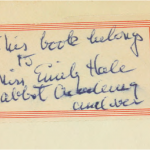 This book belongs
to
Miss Emily Hale
Abbot Academy
Andover